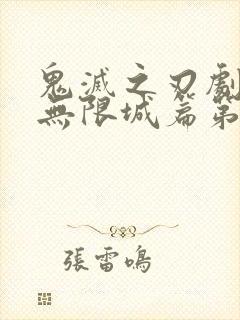 鬼滅之刃劇
無限城篇第
張雷鳴